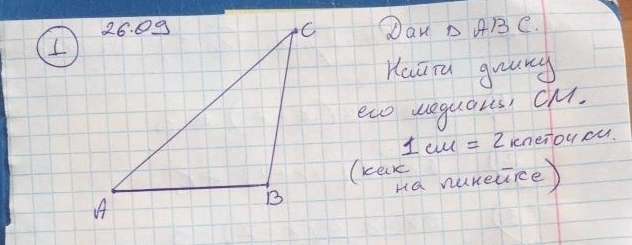 1
26.09
Дан △ ABC.
Найти длину
его медианы CM.
1 см = 2 клеточки.
(как
на линейке)
C
A
B